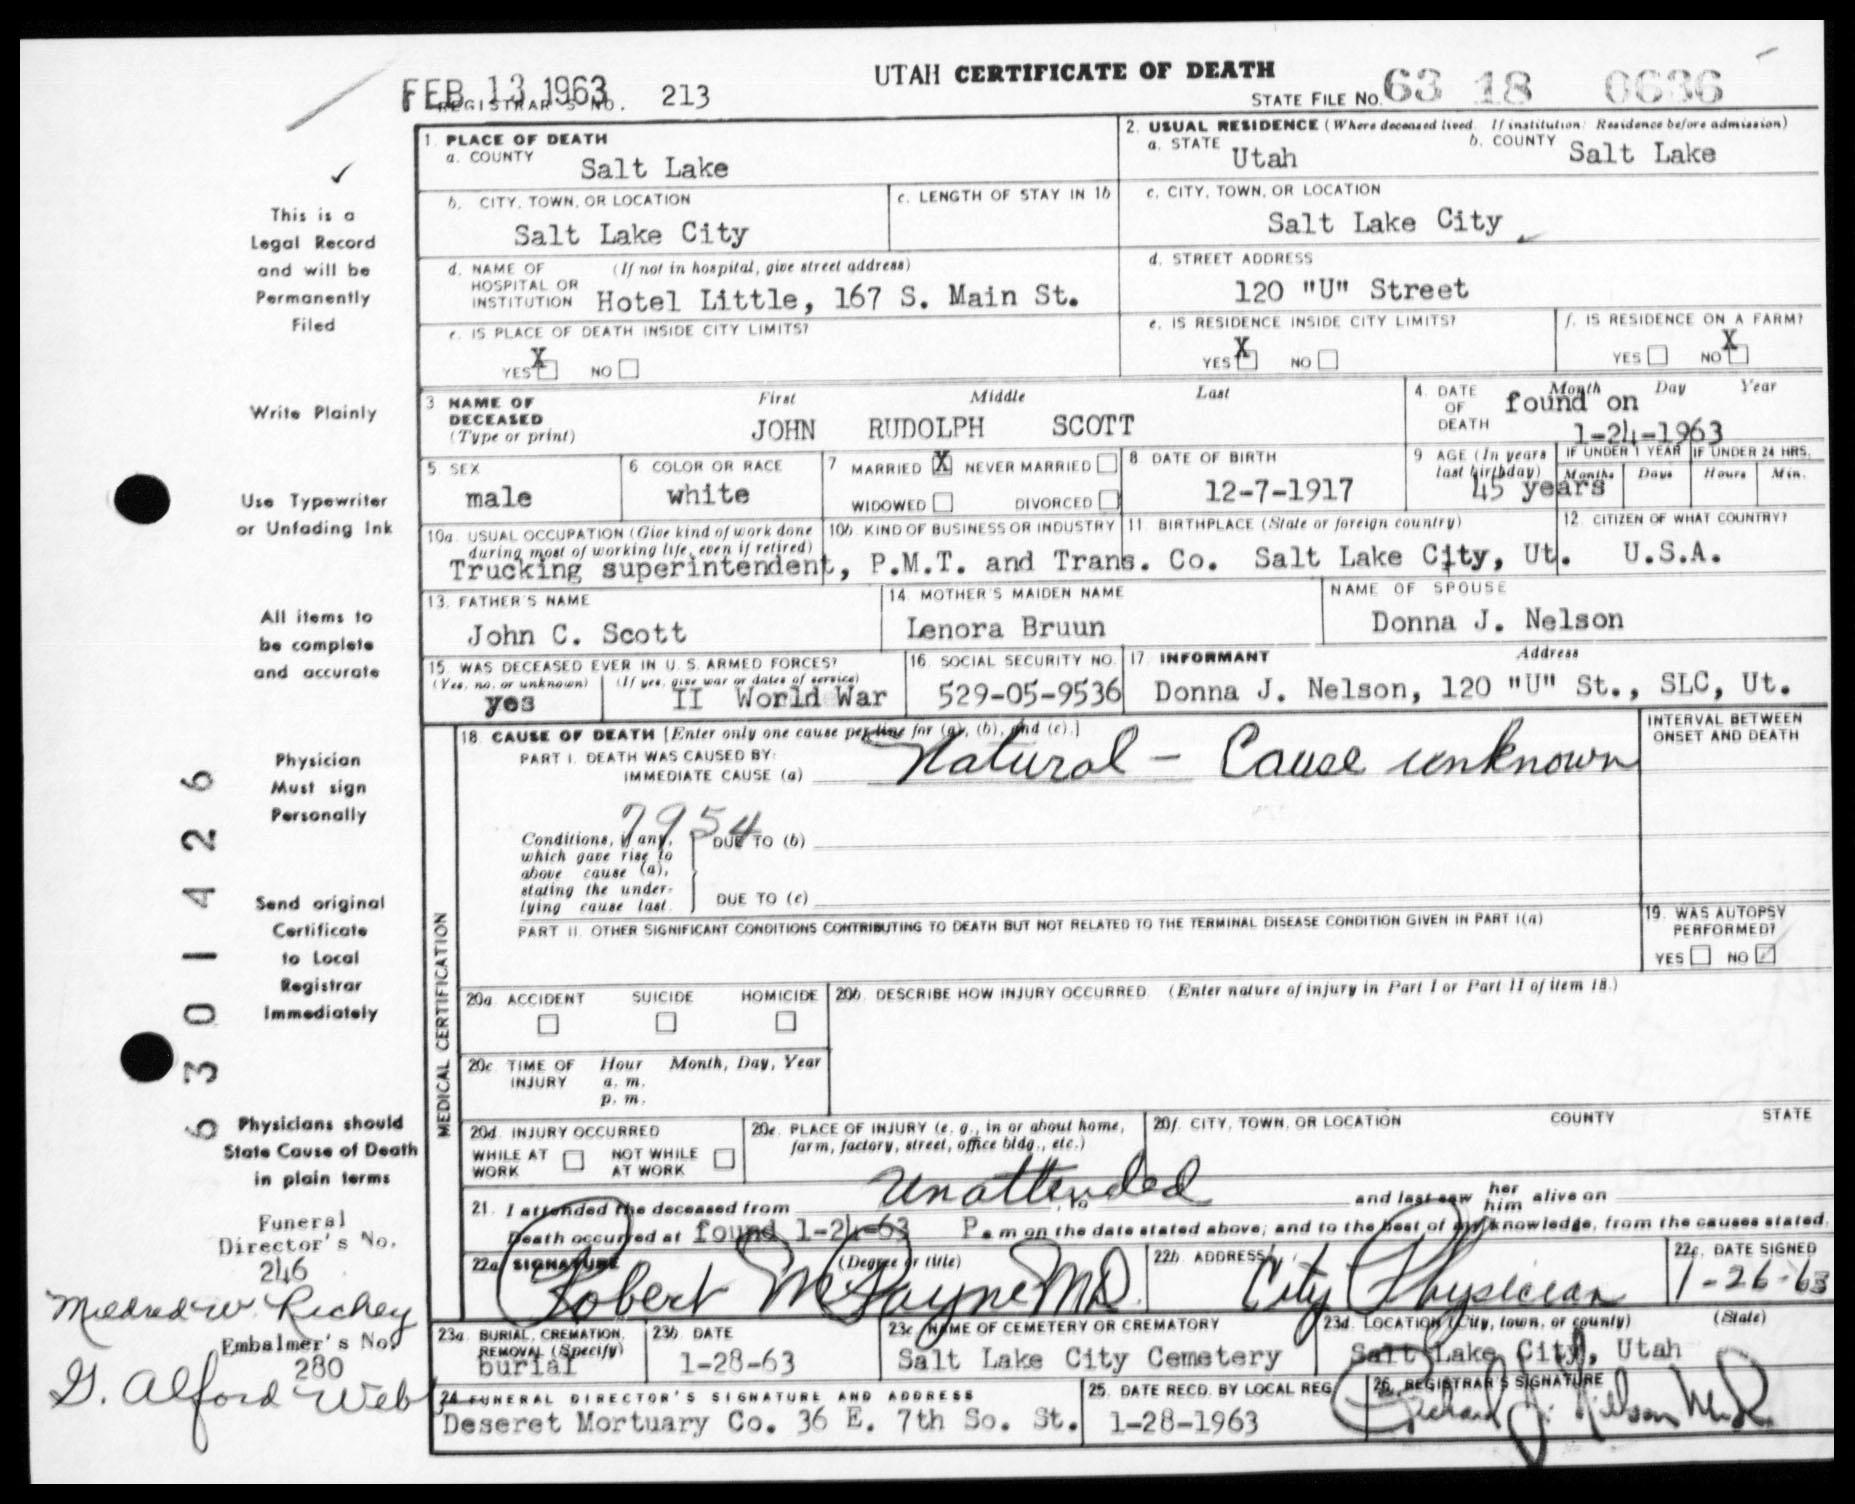 UTAH CERTIFICATE OF DEATH
FEB 13 1963
REGISTRAR'S NO. 213
STATE FILE NO. 63 18 0636
1. PLACE OF DEATH
a. COUNTY
Salt Lake
2. USUAL RESIDENCE (Where deceased lived. If institution: Residence before admission)
a. STATE Utah b. COUNTY Salt Lake
b. CITY, TOWN, OR LOCATION
Salt Lake City
c. LENGTH OF STAY IN 1b
c. CITY, TOWN, OR LOCATION
Salt Lake City
d. NAME OF HOSPITAL OR INSTITUTION (If not in hospital, give street address)
Hotel Little, 167 S. Main St.
d. STREET ADDRESS
120 "U" Street
e. IS PLACE OF DEATH INSIDE CITY LIMITS?
YES X NO
e. IS RESIDENCE INSIDE CITY LIMITS?
YES X NO
f. IS RESIDENCE ON A FARM?
YES NO X
3 NAME OF DECEASED (Type or print)
First Middle Last
JOHN RUDOLPH SCOTT
4. DATE OF DEATH Month Day Year
found on
1-24-1963
5 SEX
male
6 COLOR OR RACE
white
7 MARRIED X NEVER MARRIED
WIDOWED DIVORCED
8 DATE OF BIRTH
12-7-1917
9 AGE (In years last birthday)
45 years
IF UNDER 1 YEAR IF UNDER 24 HRS.
Months Days Hours Min.
10a. USUAL OCCUPATION (Give kind of work done during most of working life, even if retired)
10b. KIND OF BUSINESS OR INDUSTRY
11. BIRTHPLACE (State or foreign country)
12. CITIZEN OF WHAT COUNTRY?
Trucking superintendent, P.M.T. and Trans. Co. Salt Lake City, Ut. U.S.A.
13. FATHER'S NAME
John C. Scott
14. MOTHER'S MAIDEN NAME
Lenora Bruun
NAME OF SPOUSE
Donna J. Nelson
15. WAS DECEASED EVER IN U. S. ARMED FORCES?
(Yes, no, or unknown) (If yes, give war or dates of service)
yes II World War
16. SOCIAL SECURITY NO.
529-05-9536
17. INFORMANT Address
Donna J. Nelson, 120 "U" St., SLC, Ut.
18. CAUSE OF DEATH [Enter only one cause per line for (a), (b), and (c).]
PART I. DEATH WAS CAUSED BY:
IMMEDIATE CAUSE (a) Natural - Cause unknown
INTERVAL BETWEEN ONSET AND DEATH
7954
Conditions, if any, which gave rise to above cause (a), stating the underlying cause last.
DUE TO (b)
DUE TO (c)
PART II. OTHER SIGNIFICANT CONDITIONS CONTRIBUTING TO DEATH BUT NOT RELATED TO THE TERMINAL DISEASE CONDITION GIVEN IN PART I(a)
19. WAS AUTOPSY PERFORMED?
YES NO
MEDICAL CERTIFICATION
20a. ACCIDENT SUICIDE HOMICIDE
20b. DESCRIBE HOW INJURY OCCURRED. (Enter nature of injury in Part I or Part II of item 18.)
20c. TIME OF INJURY Hour Month, Day, Year
a. m.
p. m.
20d. INJURY OCCURRED
WHILE AT WORK NOT WHILE AT WORK
20e. PLACE OF INJURY (e. g., in or about home, farm, factory, street, office bldg., etc.)
20f. CITY, TOWN, OR LOCATION COUNTY STATE
21. I attended the deceased from Unattended, to and last saw her him alive on
Death occurred at found 1-24-63 P.m on the date stated above; and to the best of my knowledge, from the causes stated.
22a. SIGNATURE (Degree or title)
Robert McPayne MD
22b. ADDRESS
City Physician
22c. DATE SIGNED
1-26-63
23a. BURIAL, CREMATION, REMOVAL (Specify)
burial
23b. DATE
1-28-63
23c. NAME OF CEMETERY OR CREMATORY
Salt Lake City Cemetery
23d. LOCATION (City, town, or county) (State)
Salt Lake City, Utah
24. FUNERAL DIRECTOR'S SIGNATURE AND ADDRESS
Deseret Mortuary Co. 36 E. 7th So. St.
25. DATE RECD. BY LOCAL REG.
1-28-1963
26. REGISTRAR'S SIGNATURE
Richard J. Nelson M.D.
This is a
Legal Record
and will be
Permanently
Filed
Write Plainly
Use Typewriter
or Unfading Ink
All items to
be complete
and accurate
Physician
Must sign
Personally
Send original
Certificate
to Local
Registrar
Immediately
Physicians should
State Cause of Death
in plain terms
Funeral
Director's No.
246
Mildred W. Richey
Embalmer's No.
280
G. Alford Web
63014226